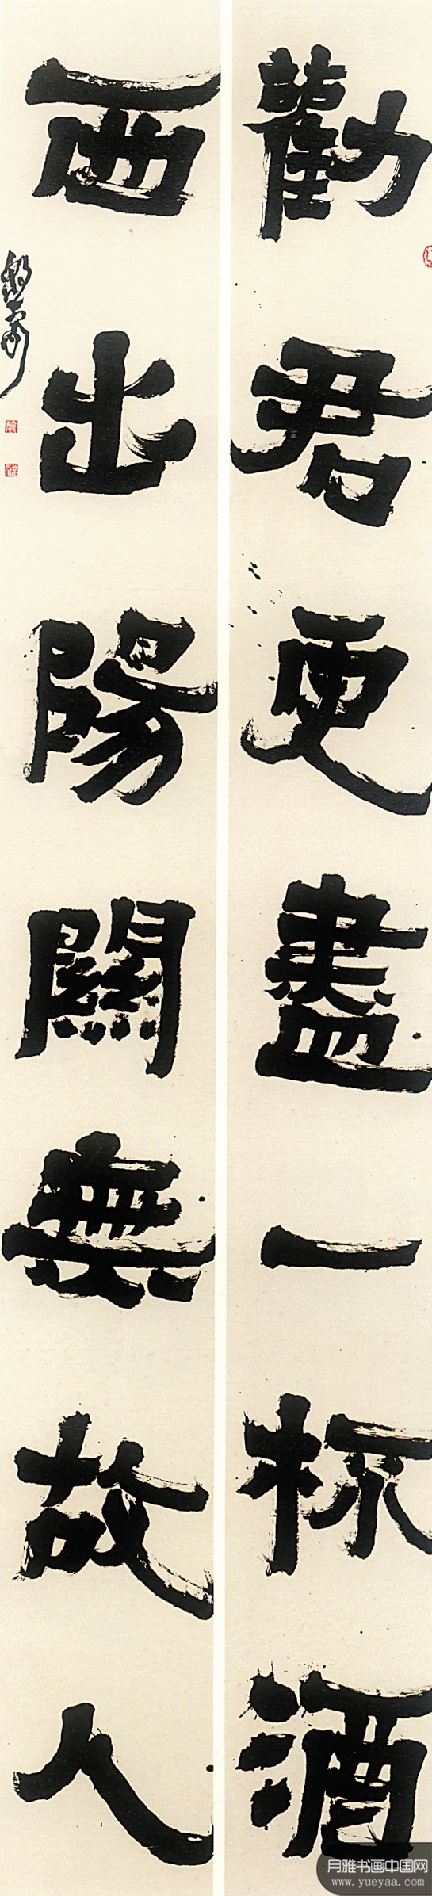 勸君更盡一杯酒
西出陽關無故人
月雅书画中国网
www.yueyaa.com